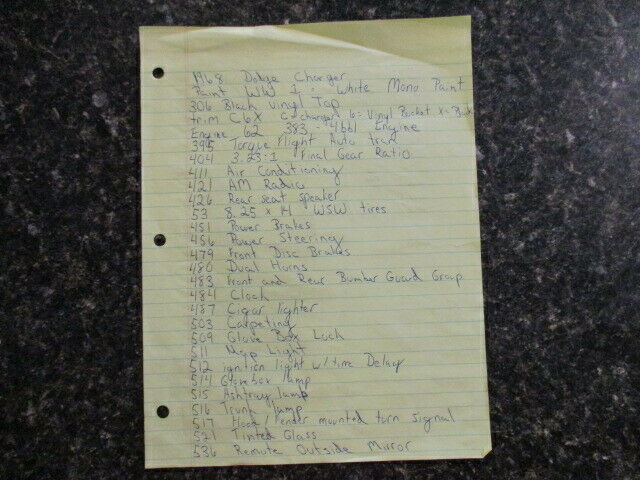 1968 Dodge Charger
Paint WW 1 : White Mono Paint
306 Black Vinyl Top
trim C6X C = charger 6 = Vinyl Bucket X = Black
Engine 62 383 - 4bbl Engine
395 Torque Flight Auto tran
404 3.23:1 Final Gear Ratio
411 Air Conditioning
421 AM Radio
426 Rear seat speaker
53 8.25 x 14 WSW tires
451 Power Brakes
456 Power Steering
479 Front Disc Brakes
480 Dual Horns
483 Front and Rear Bumber Guard Group
484 Clock
487 Cigar lighter
503 Carpeting
509 Glove Box Lock
511 Map Light
512 ignition light w/time Delay
514 Glovebox lamp
515 Ashtray lamp
516 Trunk lamp
517 Hood/Fender mounted turn signal
521 Tinted Glass
536 Remote Outside Mirror